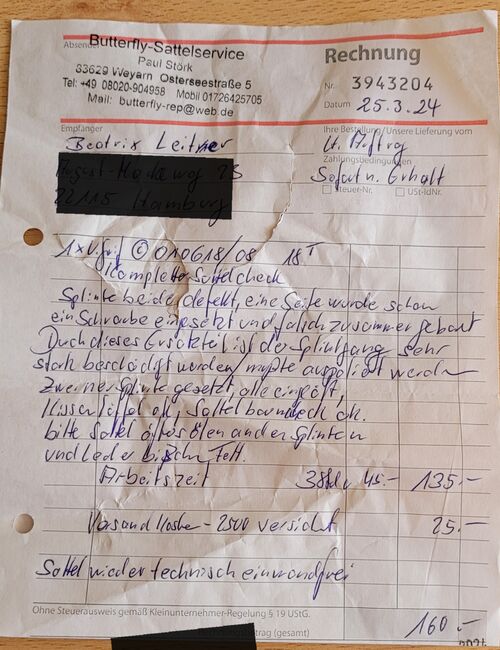 Absender
Butterfly-Sattelservice
Paul Störk
83629 Weyarn Osterseestraße 5
Tel: +49 08020-904958 Mobil 01726425705
Mail: butterfly-rep@web.de
Rechnung
Nr. 3943204
Datum 25.3.24
Empfänger
Beatrix Leitner
Ihre Bestellung/Unsere Lieferung vom
lt. Auftrag
Zahlungsbedingungen
Sofort n. Erhalt
Steuer-Nr. USt-IdNr.
22115 Hamburg
© 010618/08 18"
Kompletter Sattelcheck
Splinte beide defekt, eine Seite wurde schon
ein Schraube eingesetzt und falsch zusammen gebaut
Durch dieses Ersatzteil ist der Splintgang sehr
stark beschädigt worden, mußte ausgeliert werden
Zwei neue Splinte gesetzt, alle eingeölt,
Kissen Löffel ok, Sattelbaum Check ok.
bitte Sattel öfters ölen an den Splinten
und Leder bißchen Fett.
Arbeitszeit 3 Std. v 45.- 135.-
Versandkosten - 2500 versichert 25.-
Sattel wieder technisch einwandfrei
Ohne Steuerausweis gemäß Kleinunternehmer-Regelung § 19 UStG.
(gesamt) 160.-